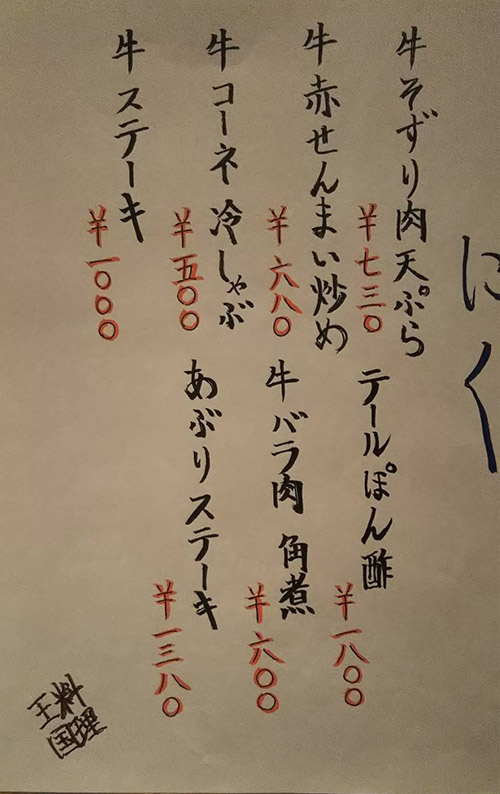 にく
牛そずり肉天ぷら
¥七三〇
テールぽん酢
¥一八〇〇
牛赤せんまい炒め
¥六八〇
牛バラ肉 角煮
¥六〇〇
牛コーネ冷しゃぶ
¥五〇〇
あぶりステーキ
¥一三八〇
牛ステーキ
¥一〇〇〇
料理
王国